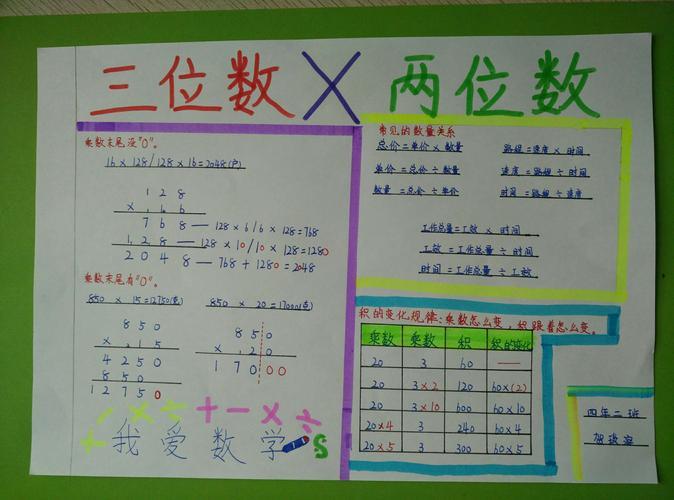 三位数 × 两位数
乘数末尾没"0"。
16 × 128 / 128 × 16 = 2048(户)
128
× 16
768 — 128 × 6 / 6 × 128 = 768
128 — 128 × 10 / 10 × 128 = 1280
2048 — 768 + 1280 = 2048
乘数末尾有"0"。
850 × 15 = 12750(克)
850
× 15
4250
850
12750
850 × 20 = 17000(克)
850
× 20
17000
+ - × ÷ + - × ÷
我爱数学
S
常见的数量关系
总价=单价 × 数量
单价=总价 ÷ 数量
数量=总价 ÷ 单价
路程=速度 × 时间
速度=路程 ÷ 时间
时间=路程 ÷ 速度
工作总量=工效 × 时间
工效=工作总量 ÷ 时间
时间=工作总量 ÷ 工效
积的变化规律:乘数怎么变,积跟着怎么变。
乘数 乘数 积 积的变化
20 3 60 —
20 3×2 120 60×(2)
20 3×10 600 60×10
20×4 3 240 60×4
20×5 3 300 60×5
四年二班